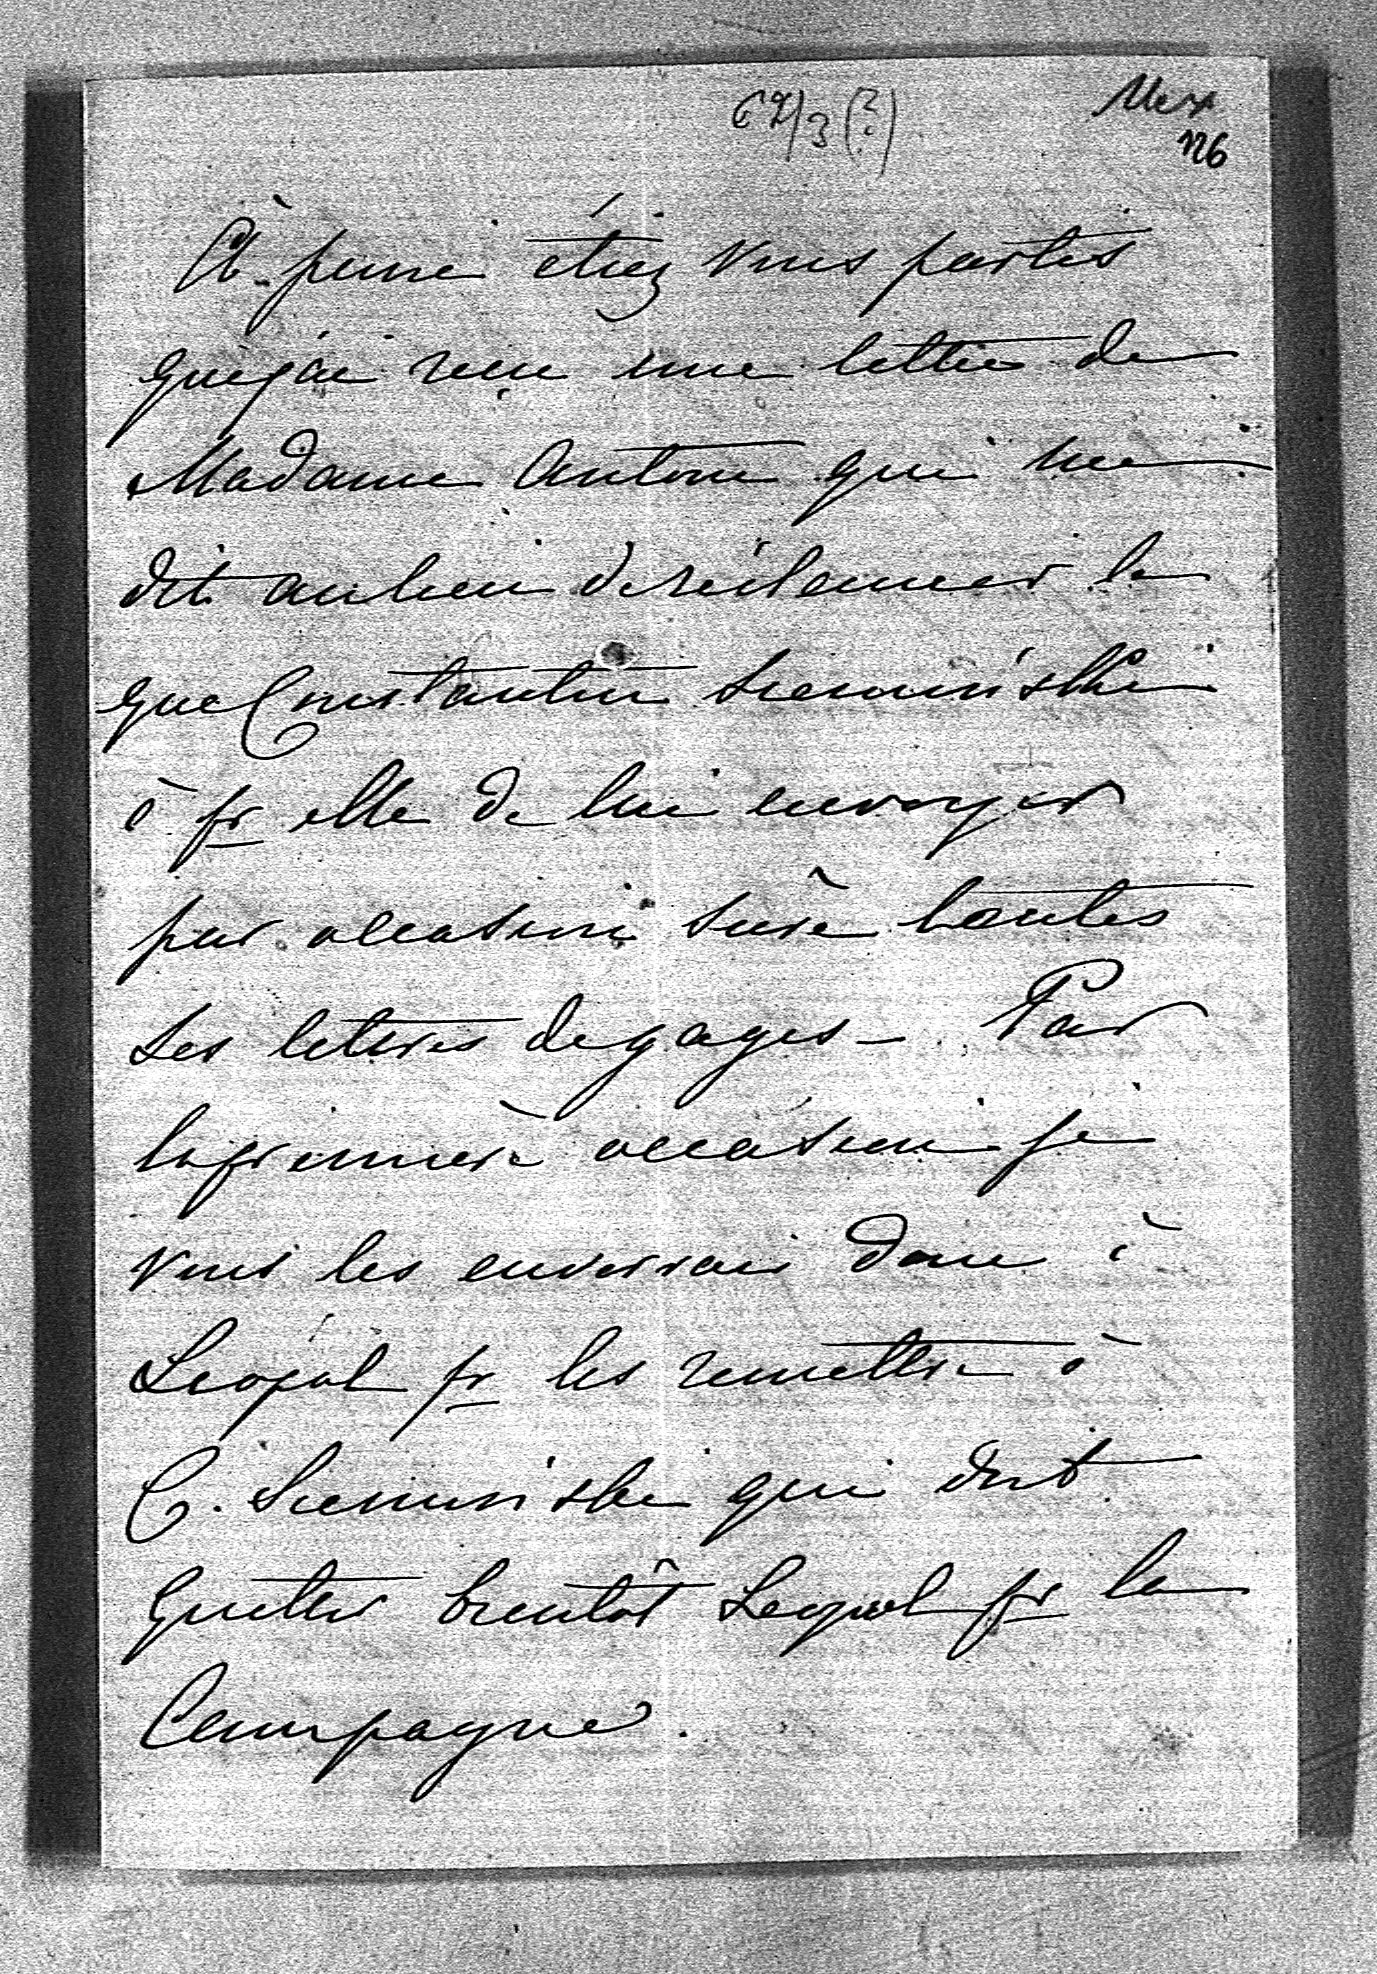 62/3 (?)
Mex
126
À peine étiez vous partis
que j'ai reçu une lettre de
Madame Antoni qui me
dit au lieu de réclamer le
que Constantin Siemiński
à pr elle de lui envoyer
par occasion sûre toutes
les lettres de gages – Par
la première occasion je
vous les enverrai donc à
Leopol pr les remettre à
C. Siemiński qui doit
quitter bientôt Leopol pr la
Campagne.